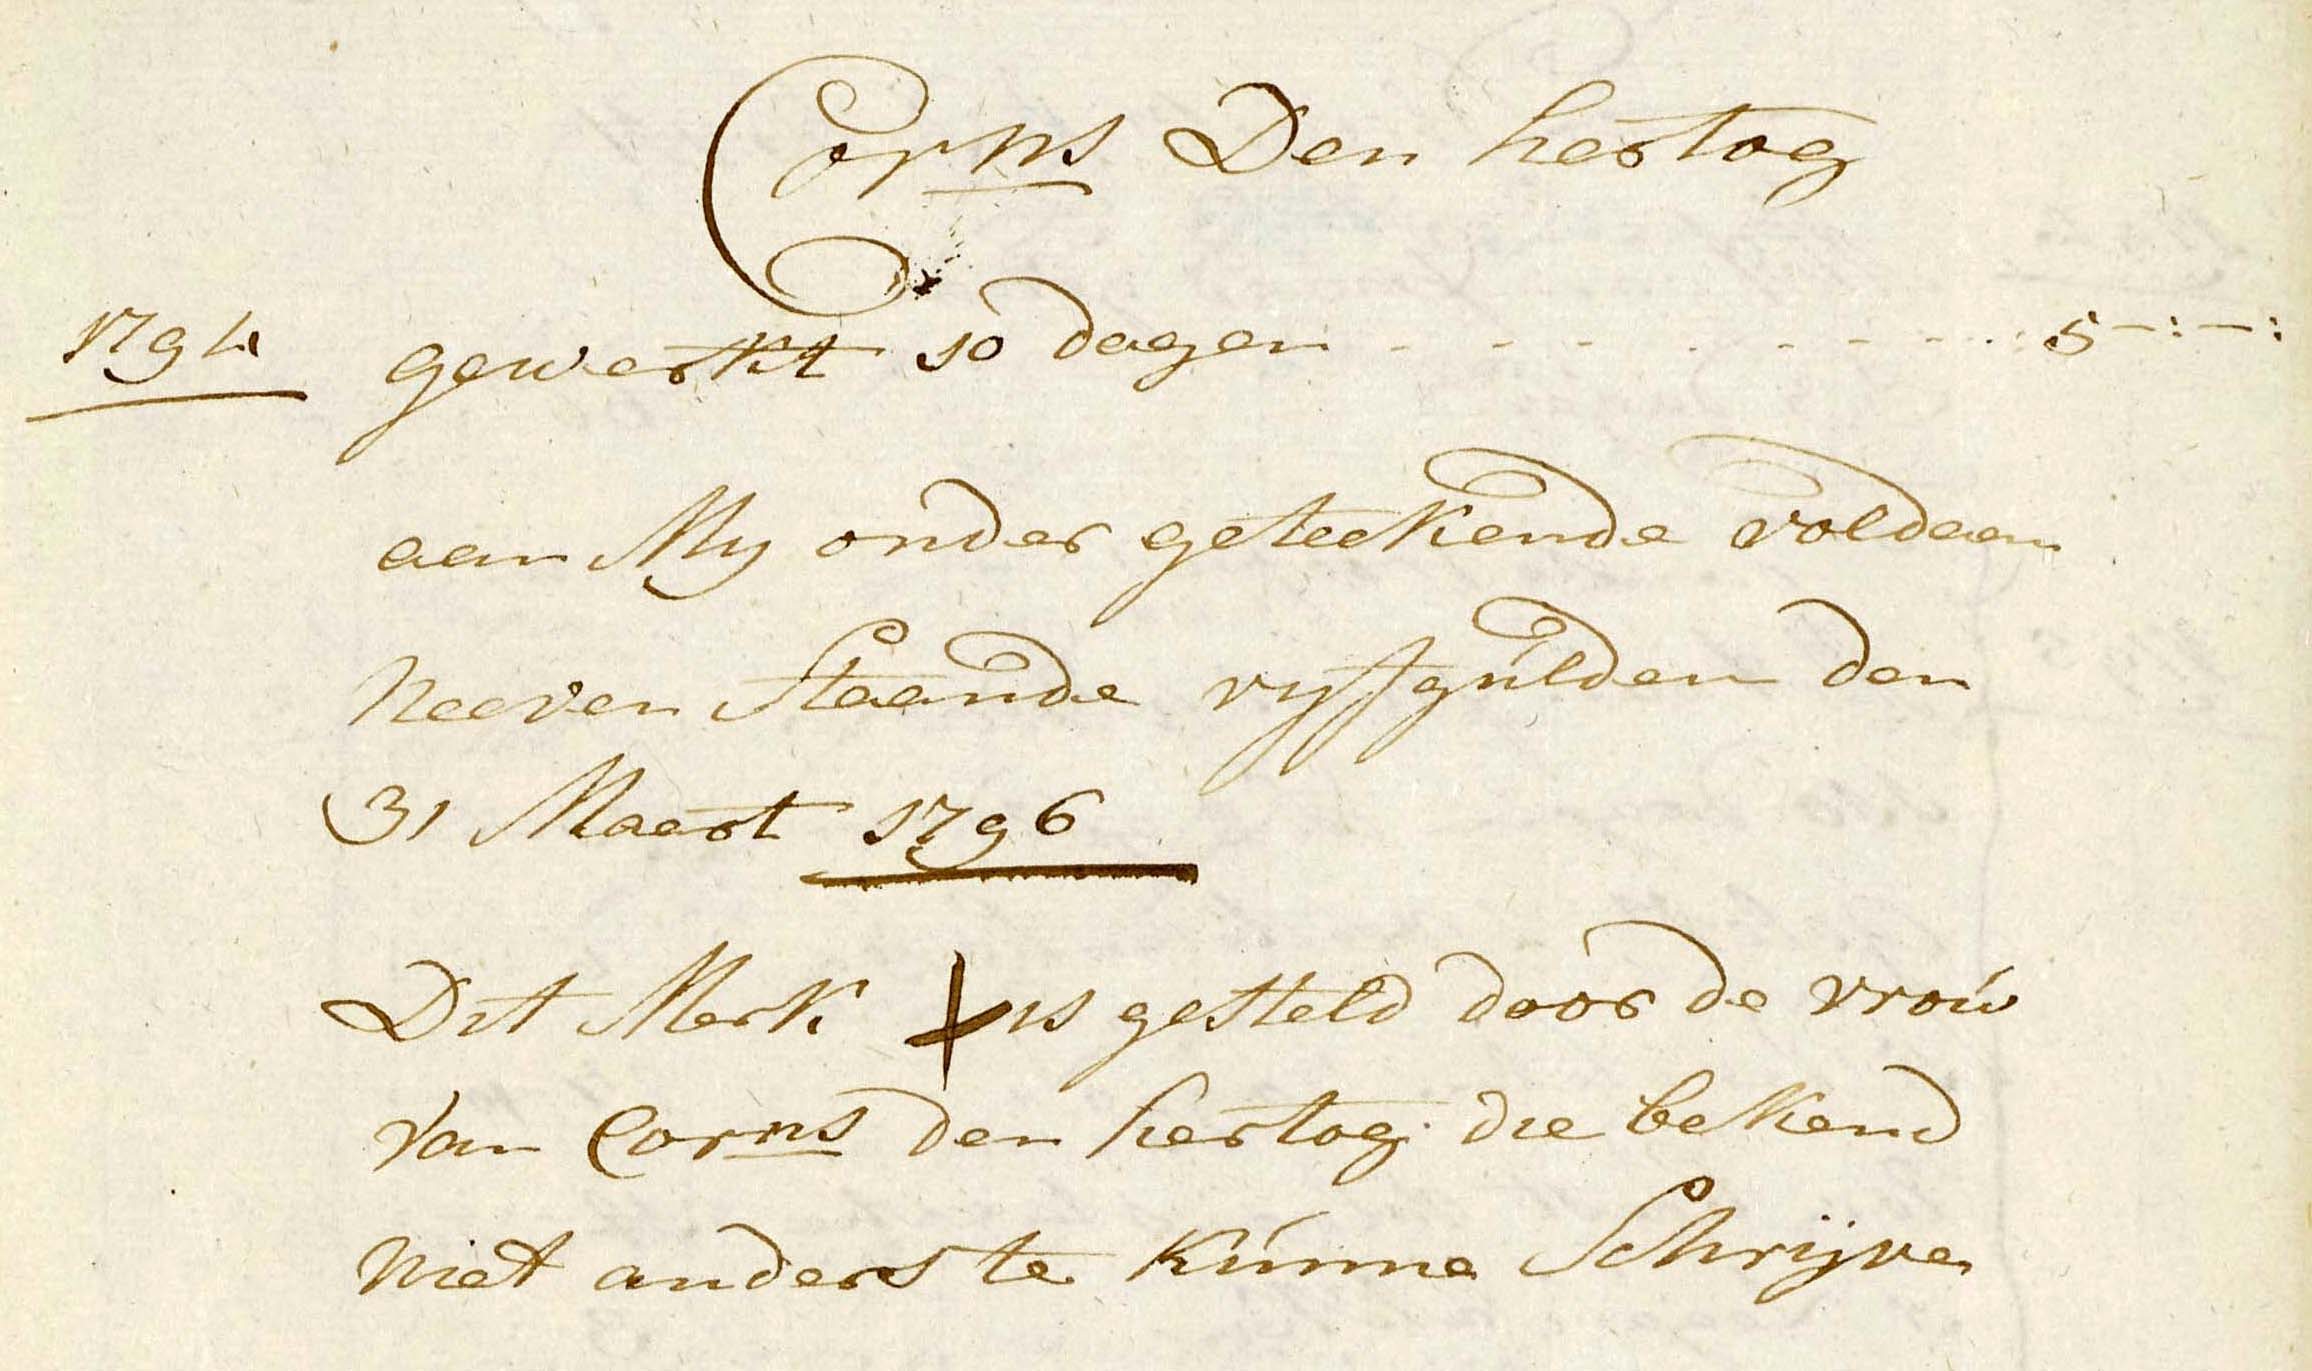 Corns Den hertog
1794 gewerkt 10 dagen - - - - - - - - - 5-:-:
aan My onder geteekende voldaan
Neeven Staande vyf gulden den
31 Maert 1796
Dit Merk + is gesteld door de vrouw
van Corns den hertog die bekend
Niet anders te kunne Schrijve